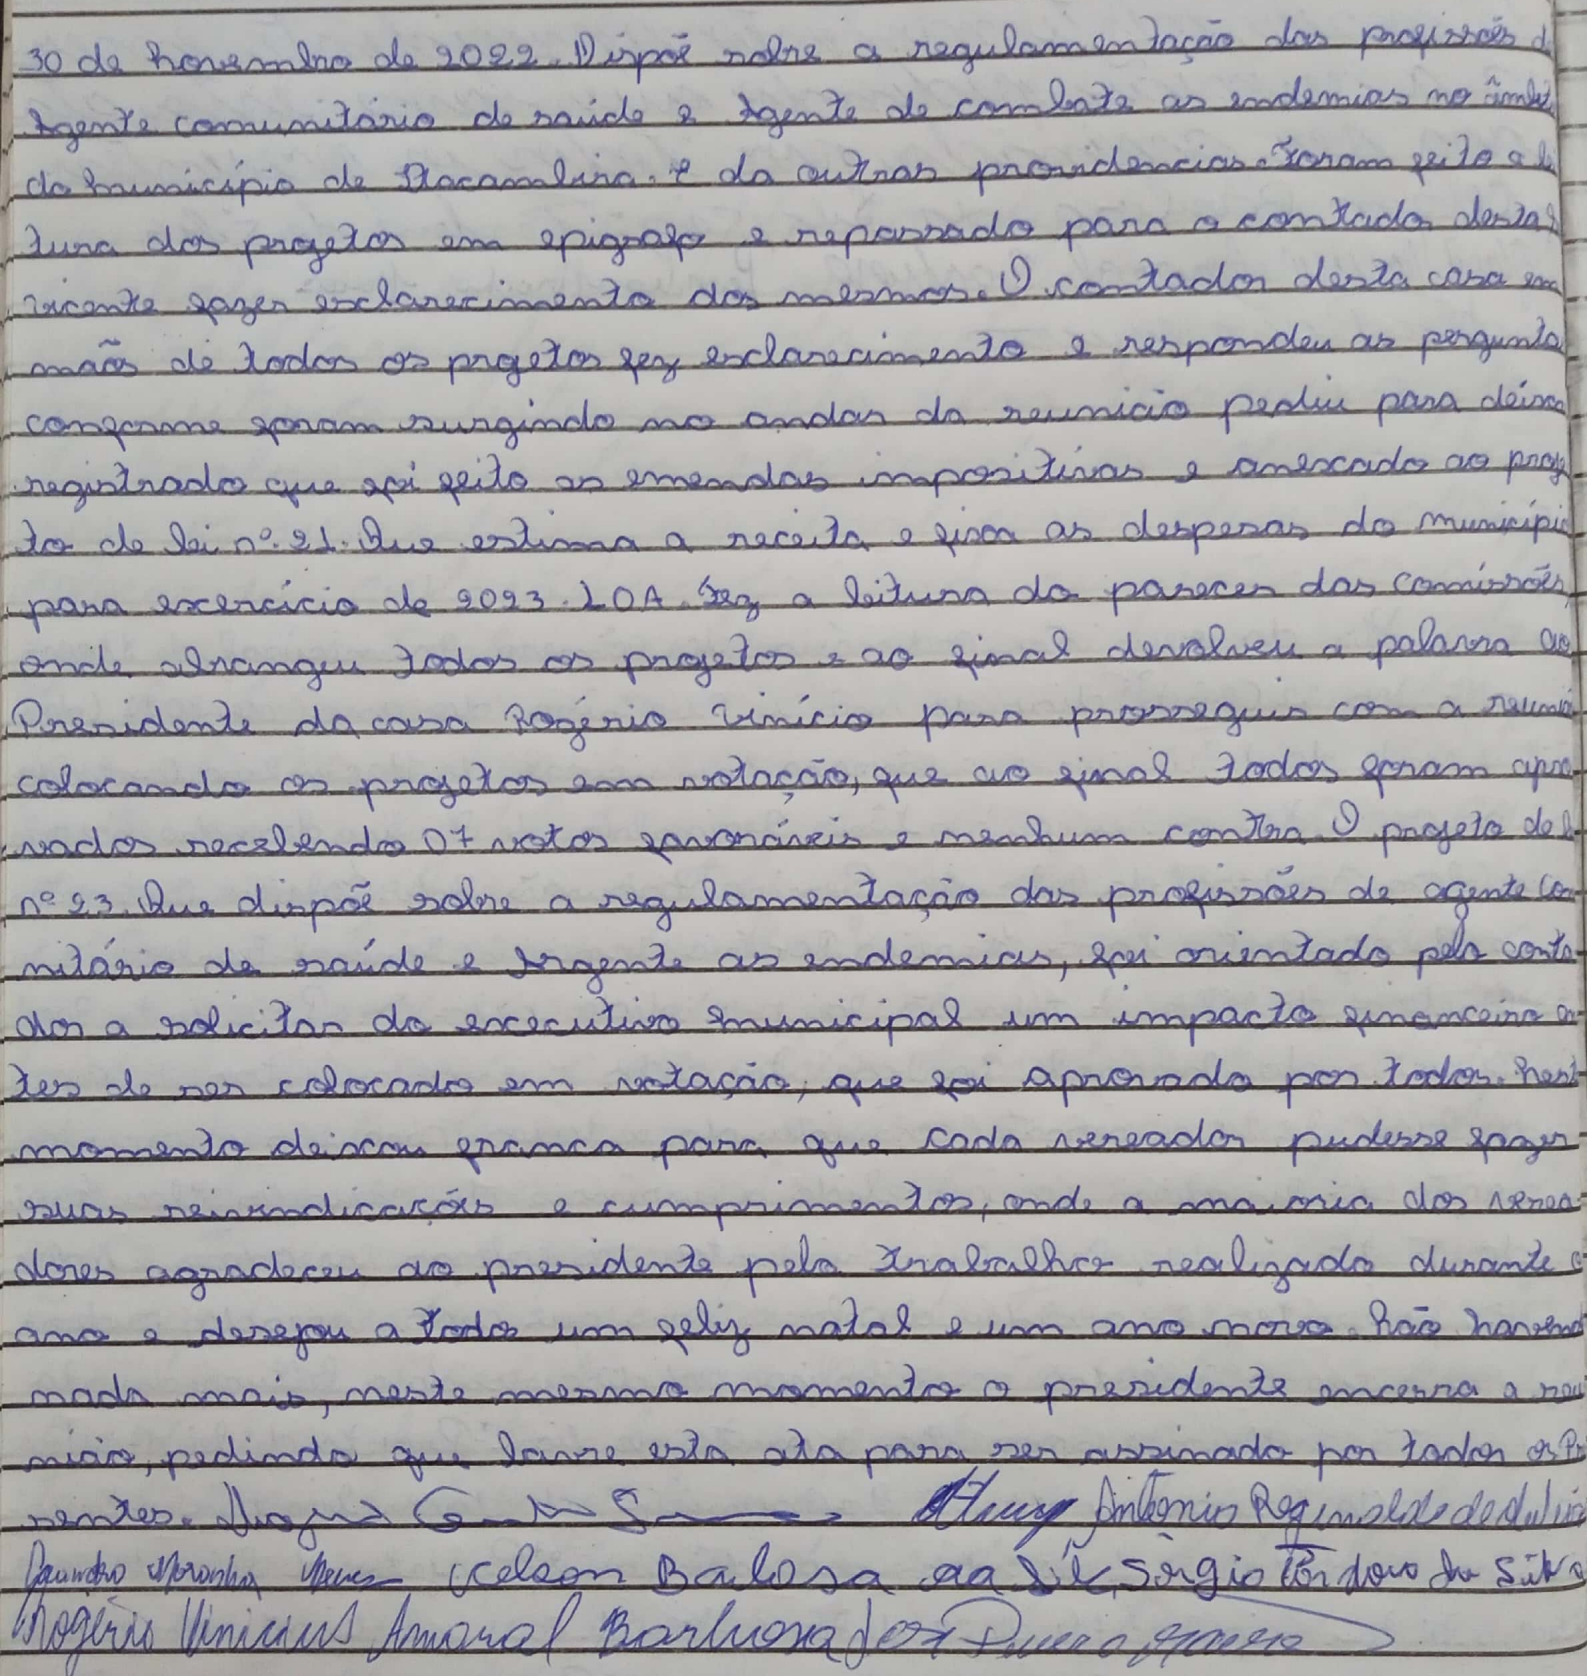 30 de Novembro de 2022. Dispoẽ sobre a regulamentação das profissões d
Agente comunitário de saúde e Agente de combate as endemias no âmbit
do Município de Itacambira. e da outras providencias. Foram feito a lei
tura dos projetos em epigrafo e repassado para o contador desta
Vicente fazer esclarecimento dos mesmos. O contador desta casa em
maõs de todos os projetos fez esclarecimento e respondeu as pergunta
conforme foram surgindo no andar da reunicio pediu para deixar
registrado que foi feito as emendas impositivas e anexcado ao proje
to de lei nº. 21. Que estima a receita e fixa as despesas do município
para excercício de 2023. LOA. Fez a leitura do parecer das Comissões,
onde abrangeu todos os projetos e ao final devolveu a palavra ao
Presidente da casa Rogério Vinício para prosseguir com a reuniã
colocando os projetos em votação, que ao final todos foram apro
vados recebendo 07 votos favoráveis e nenhum contra. O projeto de l
nº 23. Que dispoẽ sobre a regulamentação das profissões de agente Co
nitário de saúde e Argente as endemias, foi orientado pelo conta
dor a solicitar do excecutivo municipal um impacto financeiro an
tes de ser colocado em votação, que foi aprovado por todos. Nest
momento deixou franca para que cada vereador pudesse fazer
suas reinvidicações e cumprimentos, onde a maioria dos verea
dores agradeceu ao presidente pelo trabalho realizado durante o
ano e desejou a todos um feliz natal e um ano novo. Não havend
nada mais, neste mesmo momento o presidente encerra a reu
nião, pedindo que lavre esta ata para ser assinado por todos os Pr
sentes. Antonio Reginaldo de
Noronha Kelson Barbosa da Sil Sérgio Cordovo da Silva
Rogério Vinicius Amaral Barbosa